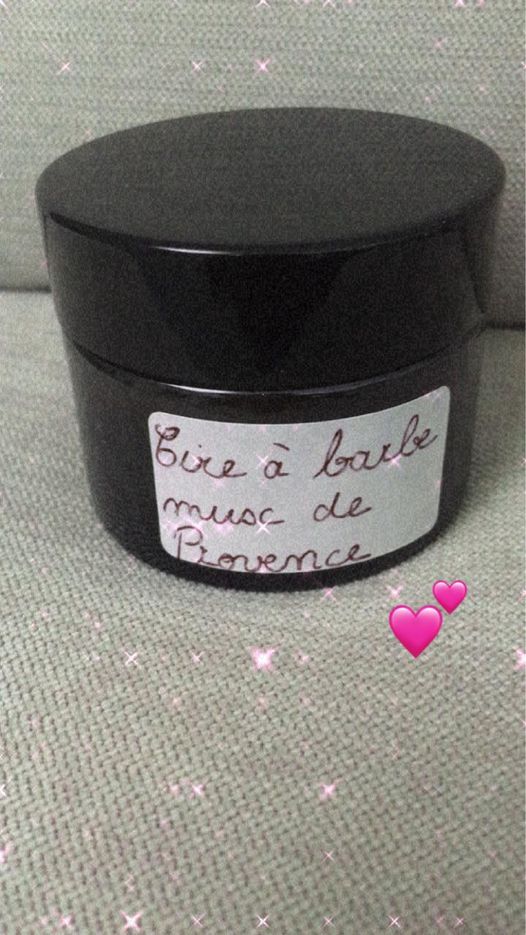 Cire à barbe
musc de
Provence